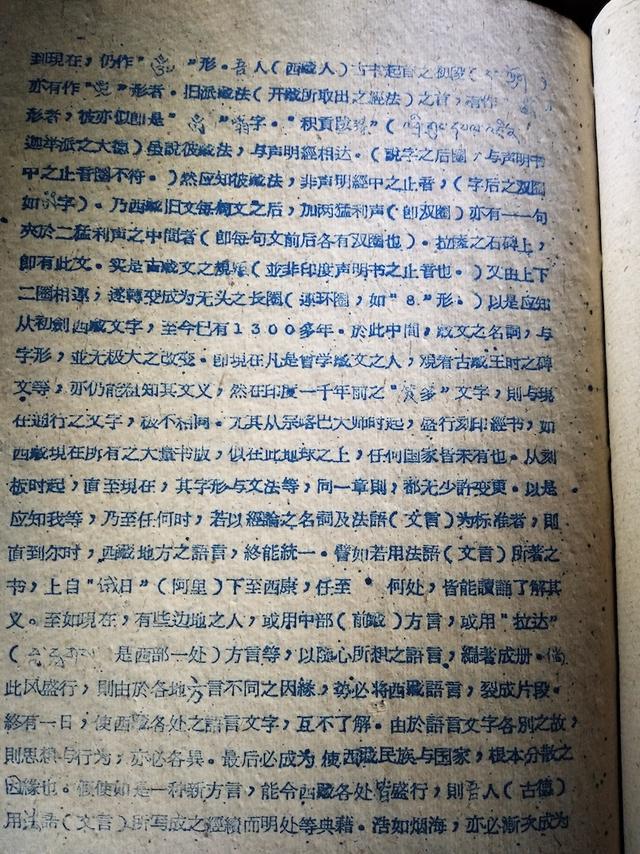 到現在，仍作" "形。吾人（西藏人）古卡起首之初
亦有作" "形者。旧派藏法（开藏所取出之經法）之首，有作
形者，彼亦似即是" " 字。"积貢
迦举派之大德）虽説彼藏法，与声明經相违。（説字之后圈，与声明书
中之止音圈不符。）然应知彼藏法，非声明經中之止音，（字后之双圈
如 字）。乃西藏旧文每個文之后，加两猛利声（卽双圈）亦有一一句
夾於二猛利声之中間者（卽每句文前后各有双圈也）。拉薩之石碑上，
卽有此文。实是古藏文之規 （並非印度声明书之止音也。）又由上下
二圈相連，遂轉变成为无头之長圈（連环圈，如"8"形。）以是应知
从初創西藏文字，至今已有1300多年。於此中間，藏文之名詞，与
字形，並无极大之改变。卽現在凡是曾学藏文之人，覌看古藏王时之碑
文等，亦仍能粗知其文义，然在印度一千年前之" "文字，則与現
在通行之文字，极不相同。尤其从宗喀巴大师时起，盛行刻印經书，如
西藏現在所有之大量书版，似在此地球之上，任何国家皆未有也。从刻
板时起，直至現在，其字形与文法等，同一章則，都无少許变更。以是
应知我等，乃至任何时，若以經論之名詞及法語（文言）为标准者，則
直到尔时，西藏地方之語言，終能統一。譬如若用法語（文言）所著之
书，上自" 日"（阿里）下至西康，任至 何处，皆能讀誦了解其
义。至如現在，有些边地之人，或用中部（前藏）方言，或用"拉达"
（ 是西部一处）方言等，以随心所想之語言，編著成册。倘
此风盛行，則由於各地方言不同之因緣，势必将西藏語言，裂成片段。
終有一日，使西藏各处之語言文字，互不了解。由於語言文字各别之故，
則思想与行为，亦必各異。最后必成为 使西藏民族与国家，根本分散之
因緣也。假使如是一种新方言，能令西藏各处皆盛行，則吾人（古德）
用法語（文言）所写成之經續而明处等典藉。浩如烟海，亦必漸次成为